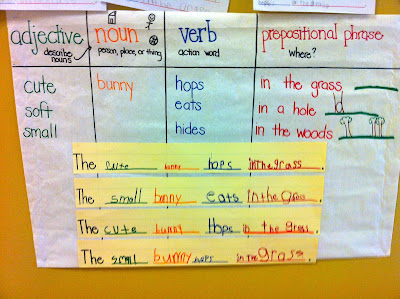 adjective noun verb prepositional phrase
describe nouns person, place, or thing action word where?
cute bunny hops in the grass
soft eats in a hole
small hides in the woods
The cute bunny hops in the grass.
The small bnny eats In the gras.
The cute bunny Hops in the grass.
The small bunny hops in the grass.